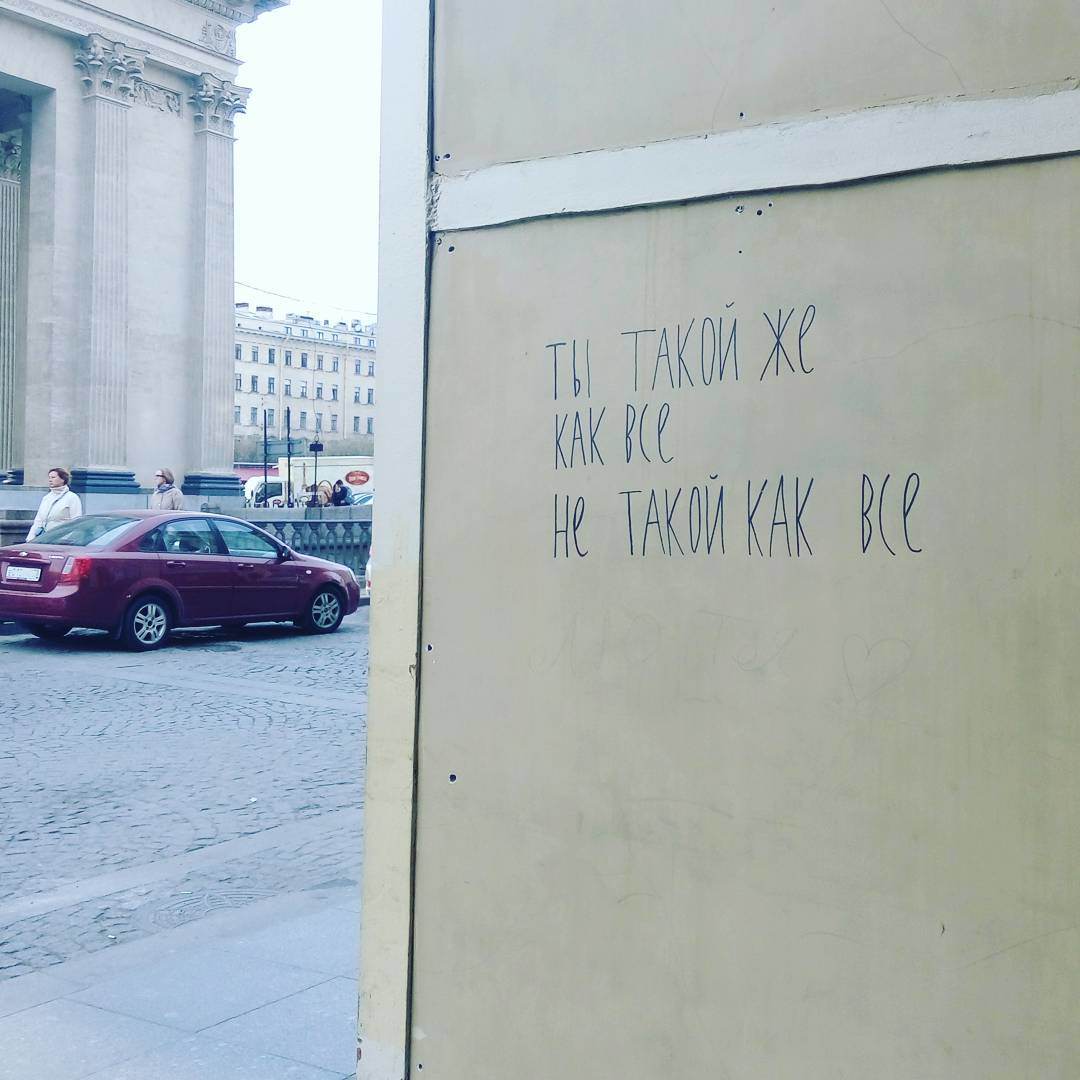 ТЫ ТАКОЙ ЖЕ
КАК ВСЕ
НЕ ТАКОЙ КАК ВСЕ